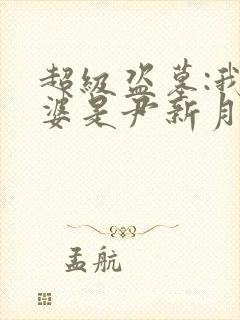 超级盗墓:我
婆是尹新月
孟航